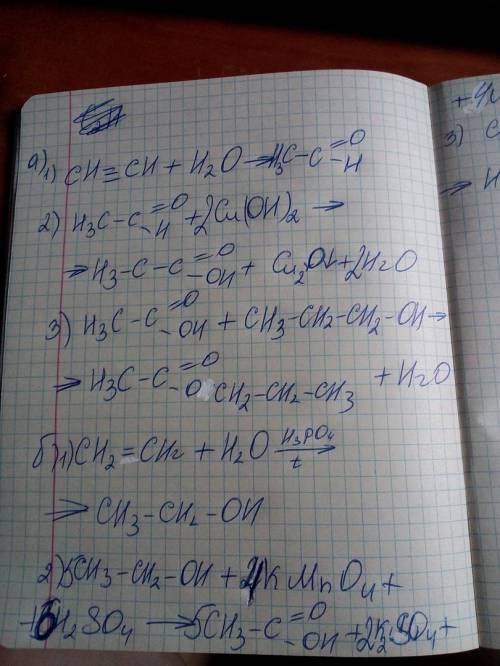 а) 1) CH≡CH + H2O → H3C-C=O-H
2) H3C-C=O-H + 2Cu(OH)2 →
→ H3-C-C=O-OH + Cu2O↓ + 2H2O
3) H3C-C=O-OH + CH3-CH2-CH2-OH →
→ H3C-C=O-O CH2-CH2-CH3 + H2O
б) 1) CH2=CH2 + H2O H3PO4 t →
→ CH3-CH2-OH
2) 5CH3-CH2-OH + 4KMnO4 +
+ 6H2SO4 → 5CH3-C=O-OH + 2K2SO4 +
+ 4M
3) C
→ H